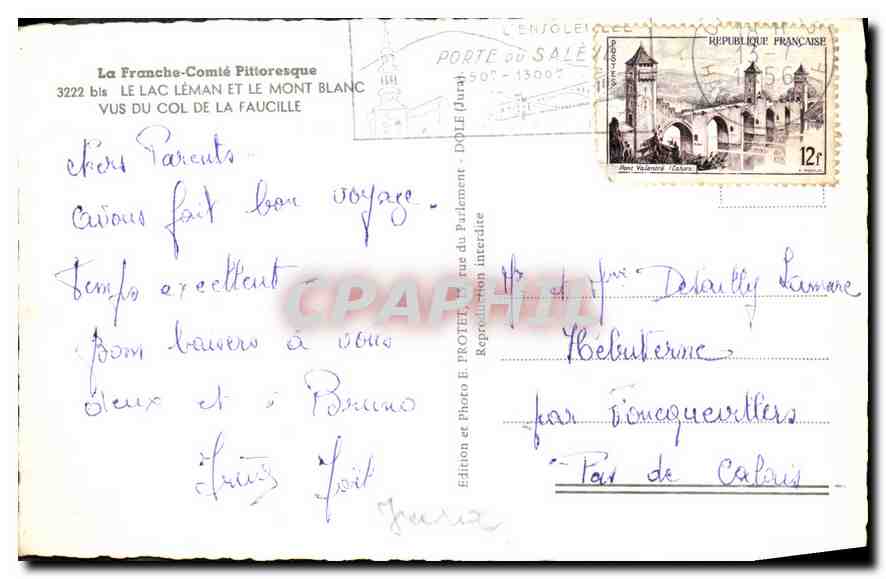 La Franche-Comté Pittoresque
3222 bis LE LAC LÉMAN ET LE MONT BLANC
VUS DU COL DE LA FAUCILLE
chers Parents.
avons fait bon voyage.
Temps excellent -
Bons baisers à vous
deux et à Bruno
Jura
Edition et Photo E. PROTET, rue du Parlement - DOLE (Jura)
Reproduction interdite
L'ENSOLEILLÉE
PORTE DU SALÈVE
RÉPUBLIQUE FRANÇAISE
POSTES
Pont Valentré (Cahors)
12f
Mr et Mme Desailly Lamare
Hébuterne
par Foncquevillers
Pas de Calais
CPAPHIL